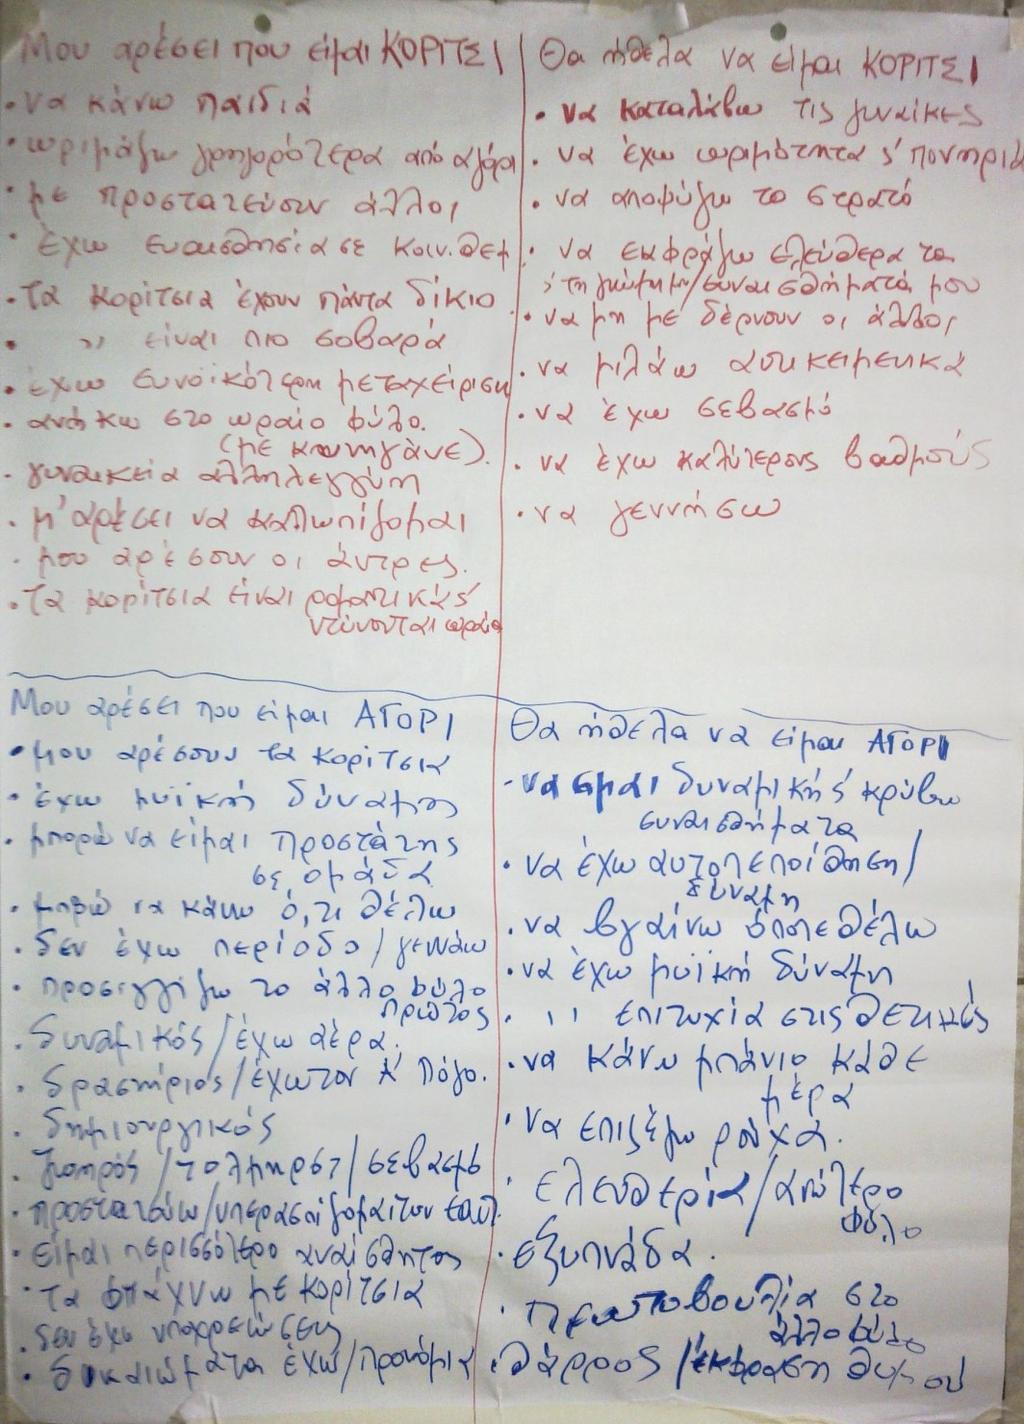 Μου αρέσει που είμαι ΚΟΡΙΤΣΙ
• να κάνω παιδιά
• ωριμάζω γρηγορότερα από αγόρι
• με προστατεύουν άλλοι
• έχω ευαισθησία σε κοιν. θεμ.
• Τα κορίτσια έχουν πάντα δίκιο
• " είναι πιο σοβαρά
• έχω ευνοϊκότερη μεταχείριση
• ανήκω στο ωραίο φύλο.
(με κυνηγάνε).
• γυναικεία αλληλεγγύη
• μ' αρέσει να καλωπίζομαι
• μου αρέσουν οι άντρες.
• Τα κορίτσια είναι ρομαντικά ς'
ντύνονται ωραία
Θα ήθελα να είμαι ΚΟΡΙΤΣΙ
• να καταλάβω τις γυναίκες
• να έχω ωριμότητα ς' πονηριά
• να αποφύγω το στρατό
• να εκφράζω ελεύθερα τα
ς' τη γνώμη μου/συναισθήματά μου
• να μη με δέρνουν οι άλλοι
• να μιλάω αντικειμενικά
• να έχω σεβασμό
• να έχω καλύτερους βαθμούς
• να γεννήσω
Μου αρέσει που είμαι ΑΓΟΡΙ
• μου αρέσουν τα κορίτσια
• έχω μυϊκή δύναμη
• μπορώ να είμαι προστάτης
σε ομάδα
• μπορώ να κάνω ό,τι θέλω
• δεν έχω περίοδο/γεννάω
• προσεγγίζω το άλλο φύλο
πρώτος
• δυναμικός/έχω αέρα
• δραστήριος/έχω τον Α' λόγο.
• δημιουργικός
• ζωηρός/τολμηρός/σεβασμό
• προστατεύω/υπερασπίζομαι τον εαυτ.
• είμαι περισσότερο αναίσθητος
• τα φτιάχνω με κορίτσια
• δεν έχω υποχρεώσεις
• δικαιώματα έχω/προνόμια
Θα ήθελα να είμαι ΑΓΟΡΙ
- να είμαι δυναμική ς' κρύβω
συναισθήματα
• να έχω αυτοπεποίθηση/
δύναμη
• να βγαίνω όποτε θέλω
• να έχω μυϊκή δύναμη
• ,, επιτυχία στις θετικές
• να κάνω μπάνιο κάθε
μέρα
• να επιλέγω ρούχα.
• ελευθερία/ανώτερο
φύλο
• εξυπνάδα.
• πρωτοβουλία στο
άλλο φύλο
• θάρρος/έκφραση θυμού